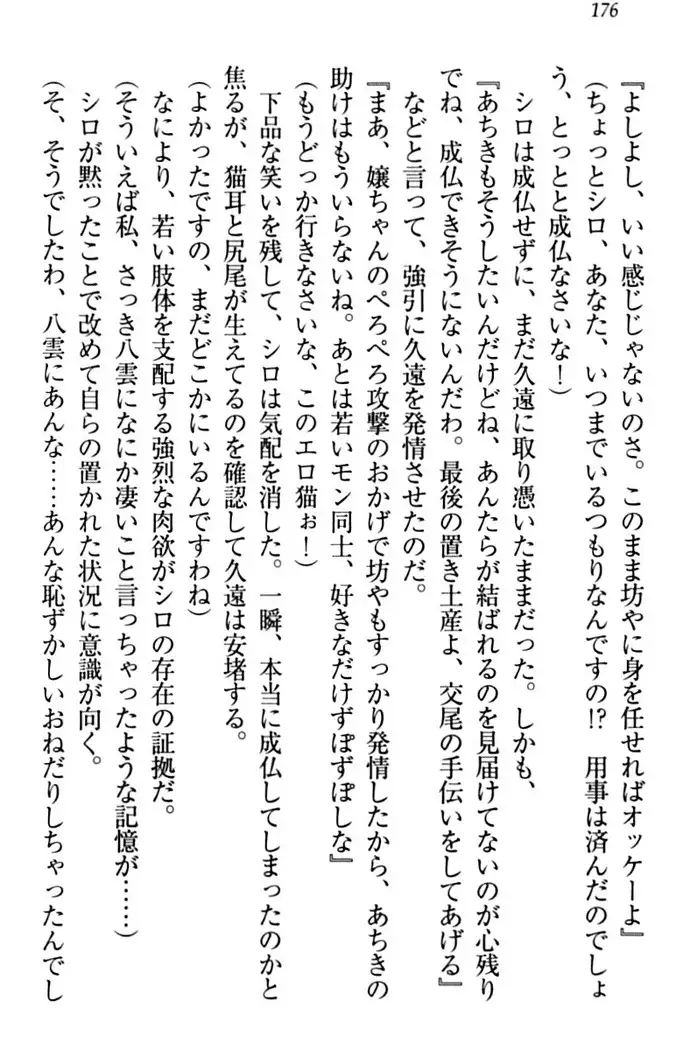 176
『よしよし、いい感じじゃないのさ。このまま坊やに身を任せればオッケーよ』
(ちょっとシロ、あなた、いつまでいるつもりなんですの!? 用事は済んだのでしょ
う、とっとと成仏なさいな!)
シロは成仏せずに、まだ久遠に取り憑いたままだった。しかも、
『あちきもそうしたいんだけどね、あんたらが結ばれるのを見届けてないのが心残り
でね、成仏できそうにないんだわ。最後の置き土産よ、交尾の手伝いをしてあげる』
などと言って、強引に久遠を発情させたのだ。
『まあ、嬢ちゃんのぺろぺろ攻撃のおかげで坊やもすっかり発情したから、あちきの
助けはもういらないね。あとは若いモン同士、好きなだけずぽずぽしな』
(もうどっか行きなさいな、このエロ猫ぉ!)
下品な笑いを残して、シロは気配を消した。一瞬、本当に成仏してしまったのかと
焦るが、猫耳と尻尾が生えてるのを確認して久遠は安堵する。
(よかったですの、まだどこかにいるんですわね)
なにより、若い肢体を支配する強烈な肉欲がシロの存在の証拠だ。
(そういえば私、さっき八雲になにか凄いこと言っちゃったような記憶が……)
シロが黙ったことで改めて自らの置かれた状況に意識が向く。
(そ、そうでしたわ、八雲にあんな……あんな恥ずかしいおねだりしちゃったんでし